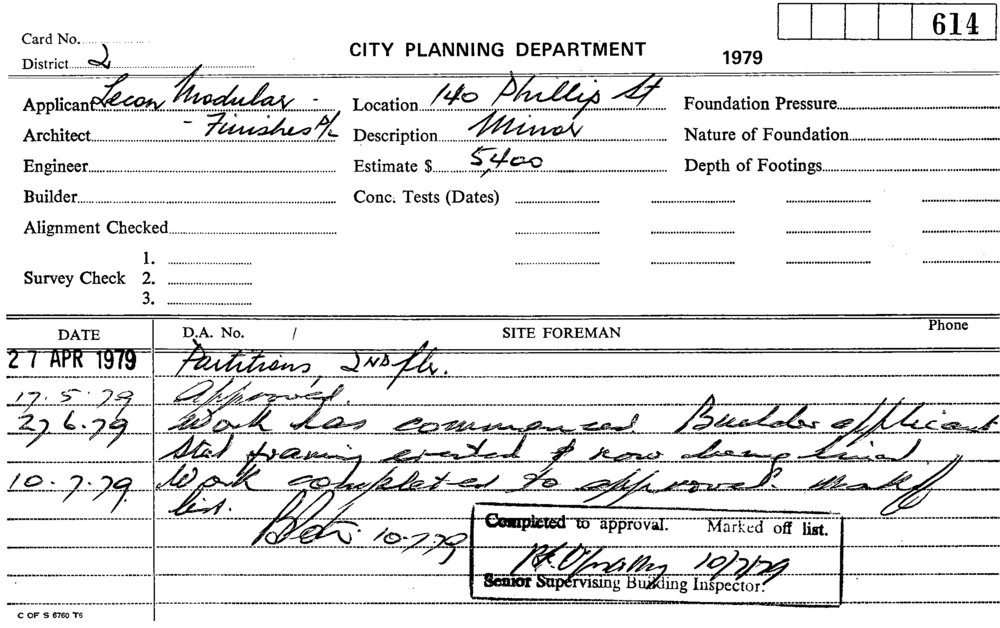 614
Card No.
CITY PLANNING DEPARTMENT 1979
District 2
Applicant Lecon Modular - Location 140 Phillip St Foundation Pressure
Architect - Finishes P/L Description Minor Nature of Foundation
Engineer Estimate $ 5,400 Depth of Footings
Builder Conc. Tests (Dates)
Alignment Checked
1.
Survey Check 2.
3.
DATE D.A. No. / SITE FOREMAN Phone
27 APR 1979 Partitions, 2ND flr.
17.5.79 Approved.
27.6.79 Work has commenced Builder applicant
steel framing erected & now being lined
10.7.79 Work completed to approval. Mark off
list.
10.7.79
Completed to approval. Marked off list.
10/7/79
Senior Supervising Building Inspector.
C OF S 6760 T5